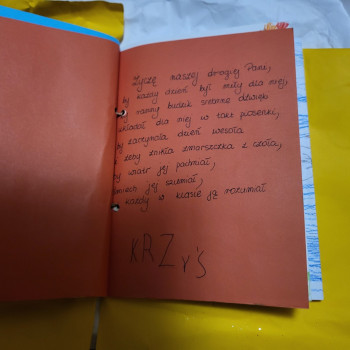 Życzę naszej drogiej Pani,
by każdy dzień był miły dla niej,
by ranny budzik srebrne dźwięki
układał dla niej w takt piosenki,
by zaczynała dzień wesoła
i żeby znikła zmarszczka z czoła,
by wiatr jej pachniał,
jej szumiał,
każdy w klasie ją rozumiał
KRZyś